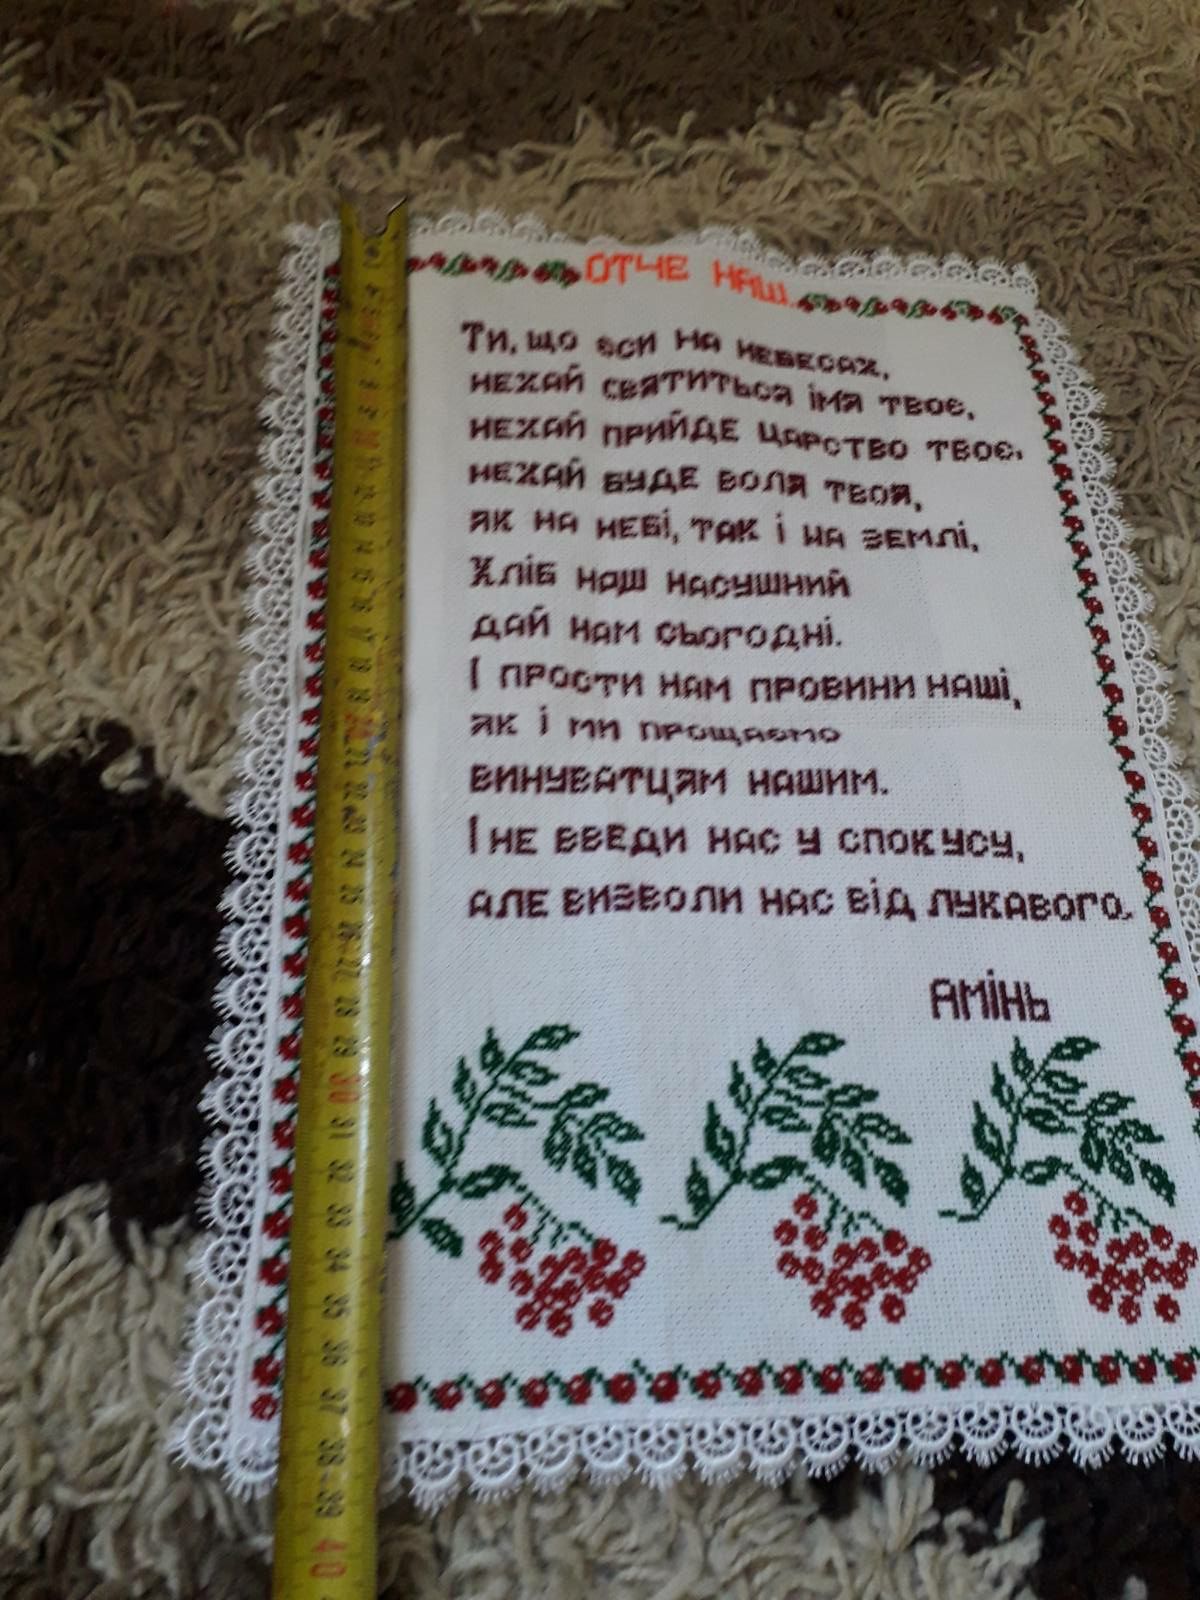 ОТЧЕ НАШ...
Ти, що єси на небесах,
нехай святиться імя твоє,
нехай прийде царство твоє,
нехай буде воля твоя,
як на небі, так і на землі,
Хліб наш насушний
дай нам сьогодні.
І прости нам провини наші,
як і ми прощаємо
винуватцям нашим.
І не введи нас у спокусу,
але визволи нас від лукавого.
АМІНЬ
20
21
22
23
24
25
26
27
28
29
30
31
32
33
34
35
36
37
38
39
40